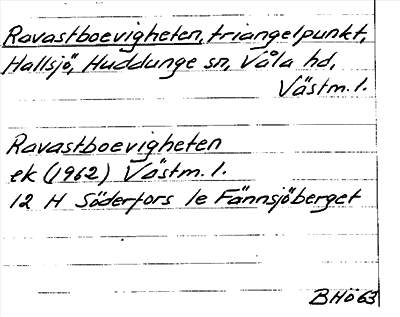 Ravastboevigheten, triangelpunkt,
Hallsjö, Huddunge sn, Våla hd,
Västm. l.
Ravastboevigheten
ek (1962) Västm. l.
12 H Söderfors 1e Fännsjöberget
BHö 63